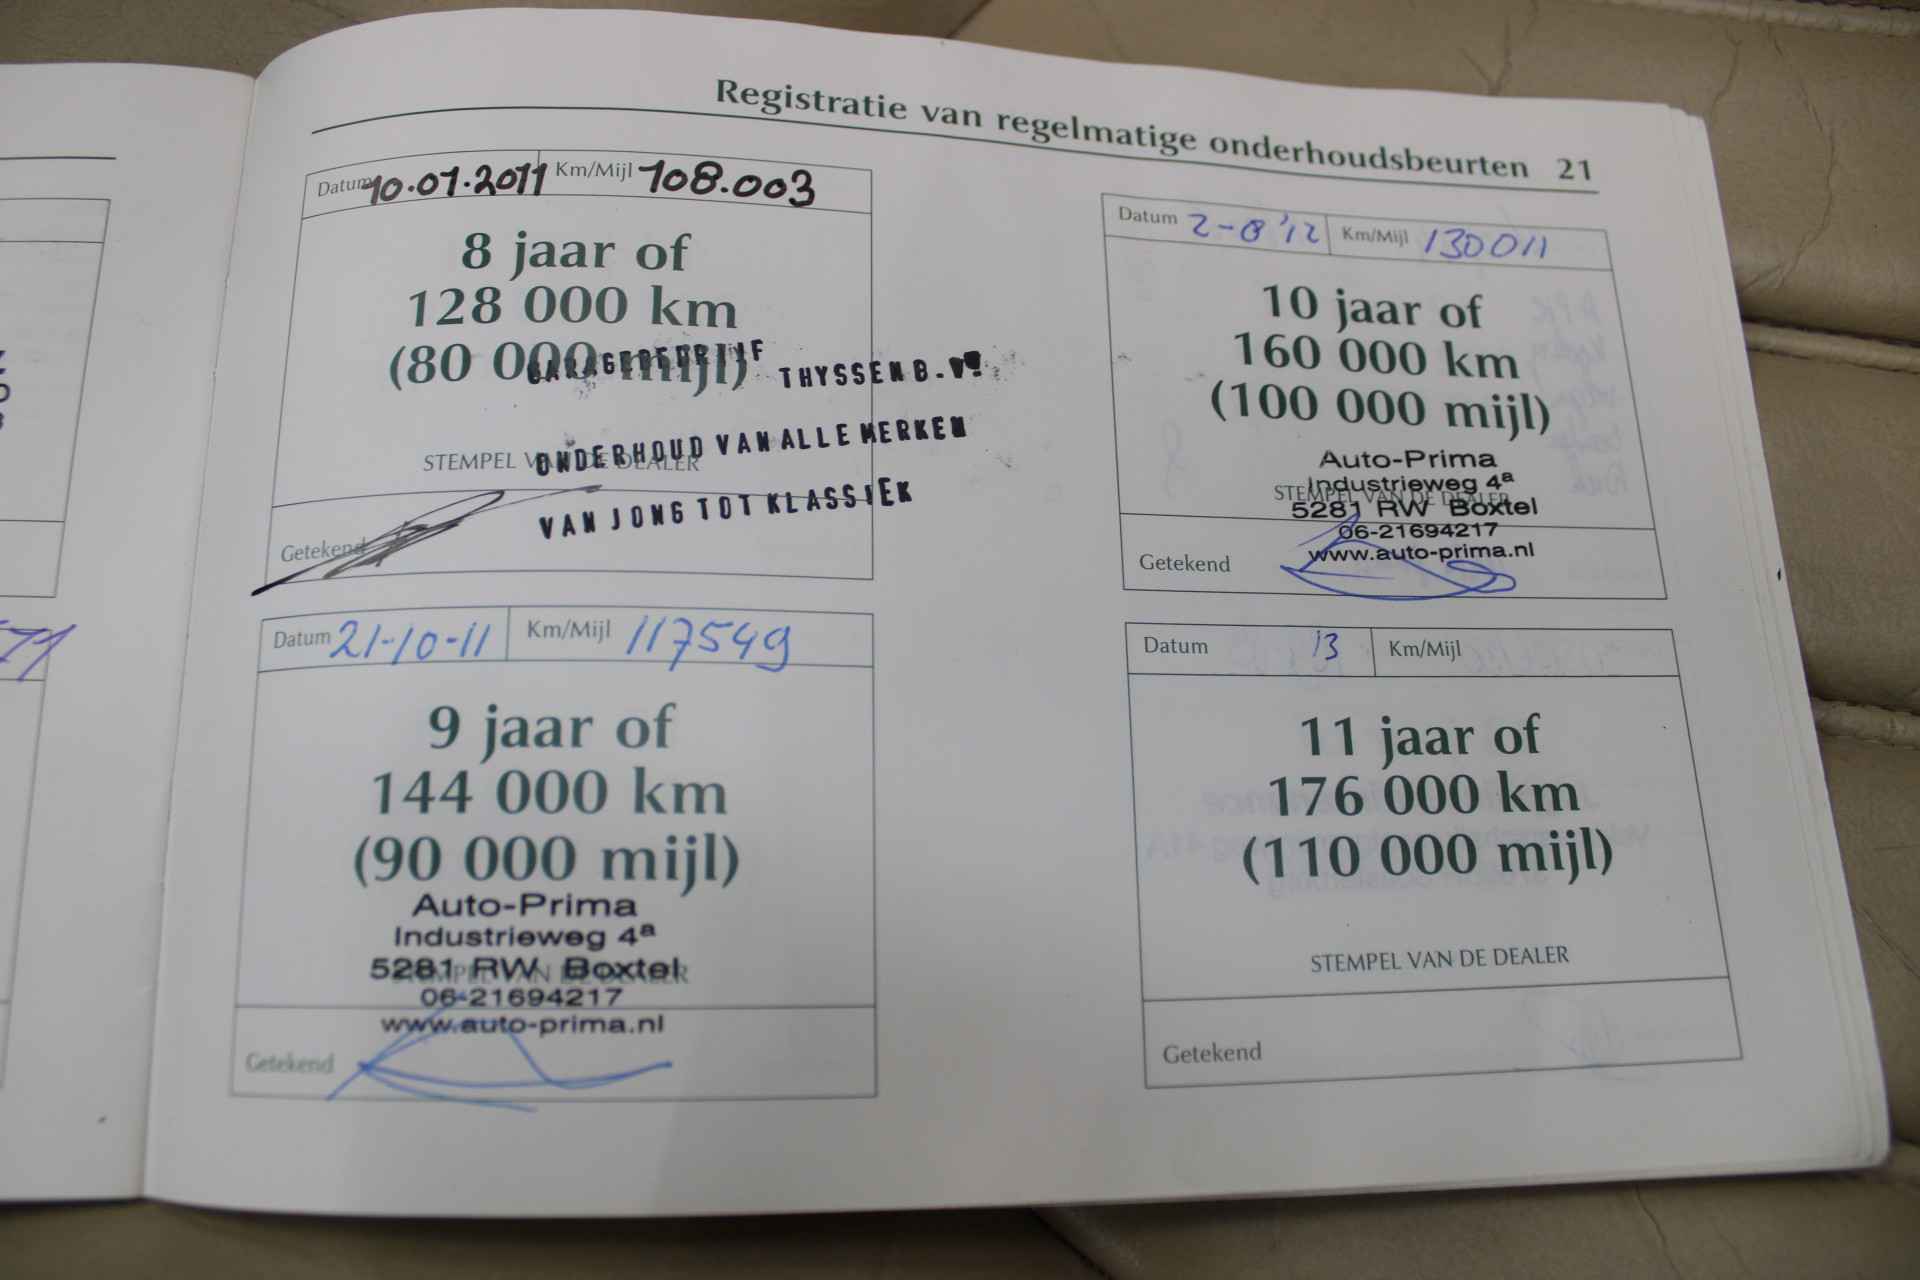 Registratie van regelmatige onderhoudsbeurten 21
Datum 10.01.2011 Km/Mijl 108.003
8 jaar of
128 000 km
(80 000 mijl)
GARAGEBEDRIJF THYSSEN B.V.
STEMPEL VAN DE DEALER
ONDERHOUD VAN ALLE MERKEN
VAN JONG TOT KLASSIEK
Getekend
Datum 21-10-11 Km/Mijl 117549
9 jaar of
144 000 km
(90 000 mijl)
Auto-Prima
Industrieweg 4a
5281 RW Boxtel
STEMPEL VAN DE DEALER
06-21694217
www.auto-prima.nl
Getekend
Datum 2-8 '12 Km/Mijl 130011
10 jaar of
160 000 km
(100 000 mijl)
Auto-Prima
Industrieweg 4a
STEMPEL VAN DE DEALER
5281 RW Boxtel
06-21694217
www.auto-prima.nl
Getekend
Datum 13 Km/Mijl
11 jaar of
176 000 km
(110 000 mijl)
STEMPEL VAN DE DEALER
Getekend